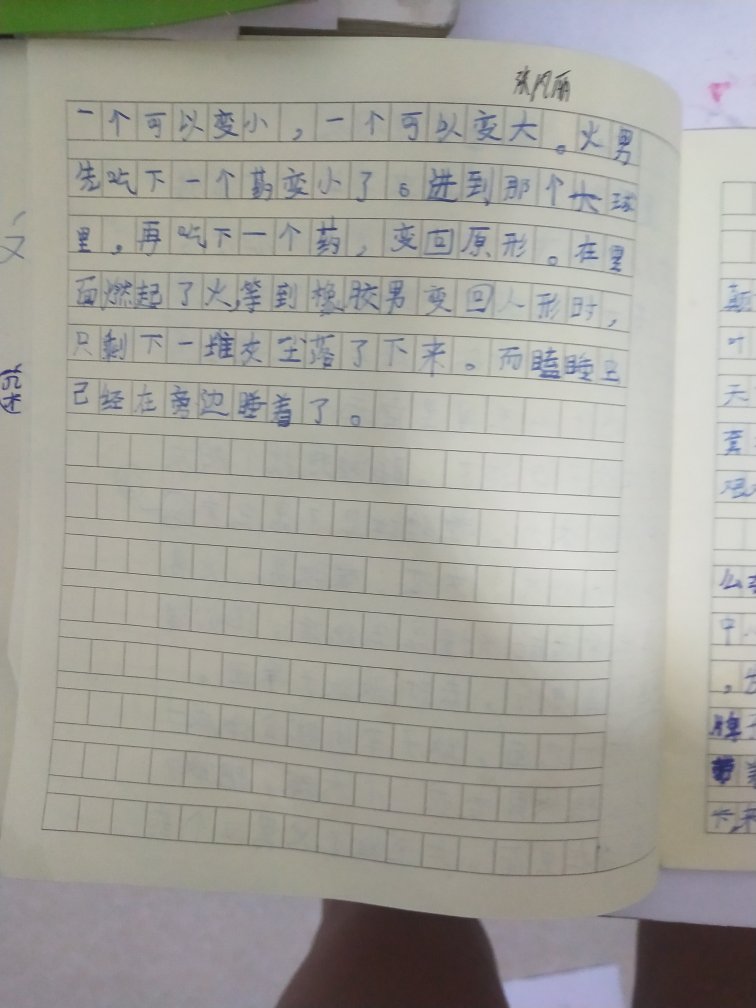 张凤丽
一个可以变小，一个可以变大。火男
先吃下一个药变小了。进到那个大球
里，再吃下一个药，变回原形。在里
面燃起了火，等到橡胶男变回人形时，
只剩下一堆灰落了下来。而瞌睡
已经在旁边睡着了。
叶
天
公
中